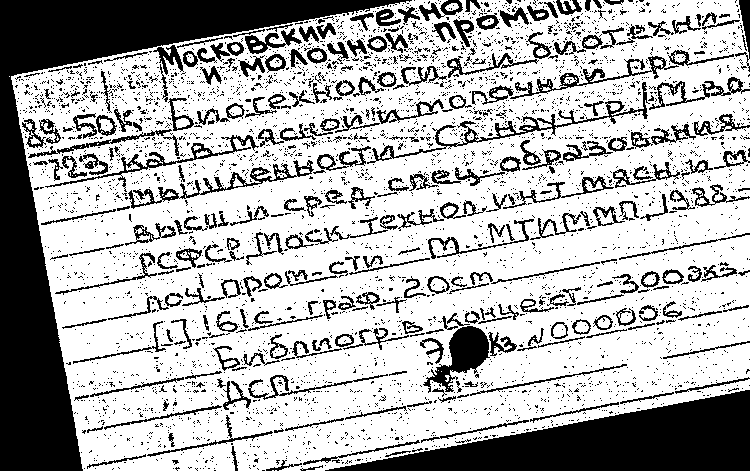 Московский технол.
и молочной промышле
89-50к Биотехнология и биотехни-
723 ка в мясной и молочной про-
мышленности: Сб. науч. тр. / М-во
высш. и сред. спец. образования
РСФСР, Моск. технол. ин-т мясн. и м
лоч. пром-сти. — М.: МТИММП, 1988. —
[1], 161 с.: граф.; 20 см
Библиогр. в конце ст. — 300 экз.
ДСП. Экз. N 000006